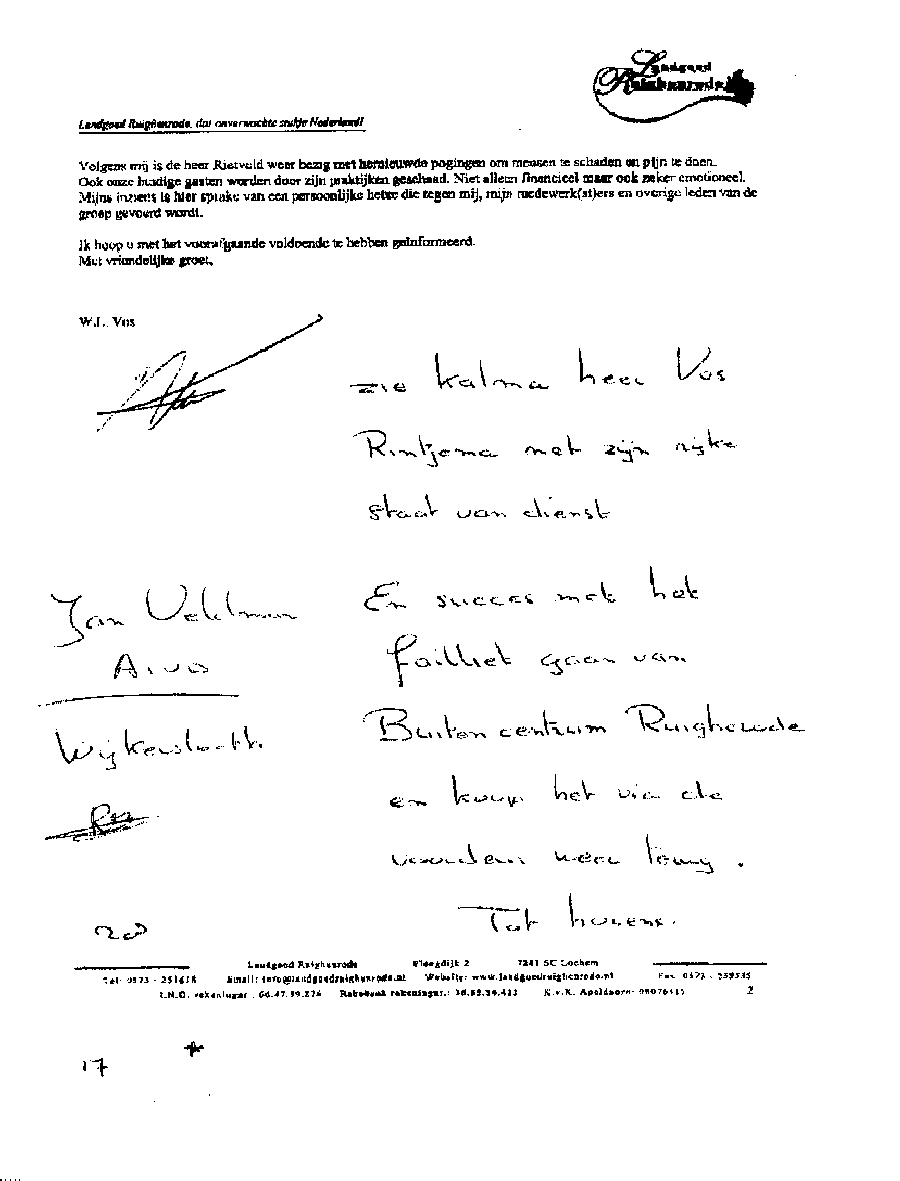 Landgoed
Ruighenrode
Landgoed Ruighenrode, dat onverwachte stukje Nederland!
Volgens mij is de heer Rietveld weer bezig met hernieuwde pogingen om mensen te schaden en pijn te doen.
Ook onze huidige gasten worden door zijn praktijken geschaad. Niet alleen financieel maar ook zeker emotioneel.
Mijns inziens is hier sprake van een persoonlijke hetze die tegen mij, mijn medewerk(st)ers en overige leden van de
groep gevoerd wordt.
Ik hoop u met het voorafgaande voldoende te hebben geïnformeerd.
Met vriendelijke groet,
W.L. Vos
zie Kalma heer Vos
Rintjema met zijn rijke
staat van dienst
Jan Veldman
En succes met het
failliet gaan van
Buitencentrum Ruighenrode
en koop het via de
weer terug.
Tot horens.
20
Landgoed Ruighenrode Vliegdijk 2 7241 SC Lochem
Tel: 0573 - 251618 Email: info@landgoedruighenrode.nl Website: www.landgoedruighenrode.nl Fax: 0573 -
K.v.K. Apeldoorn: 2
17 *